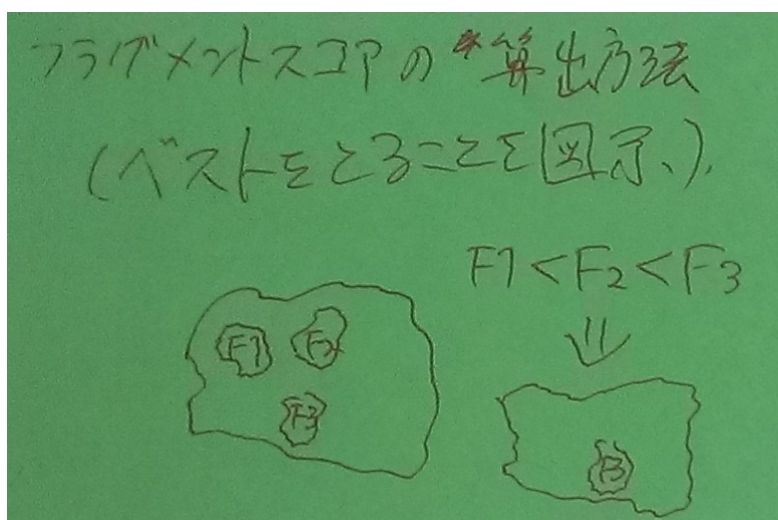 フラグメントスコアの算出方法
(ベストをとることを図示、).
F1<F2<F3
F1 F2
F3
F3